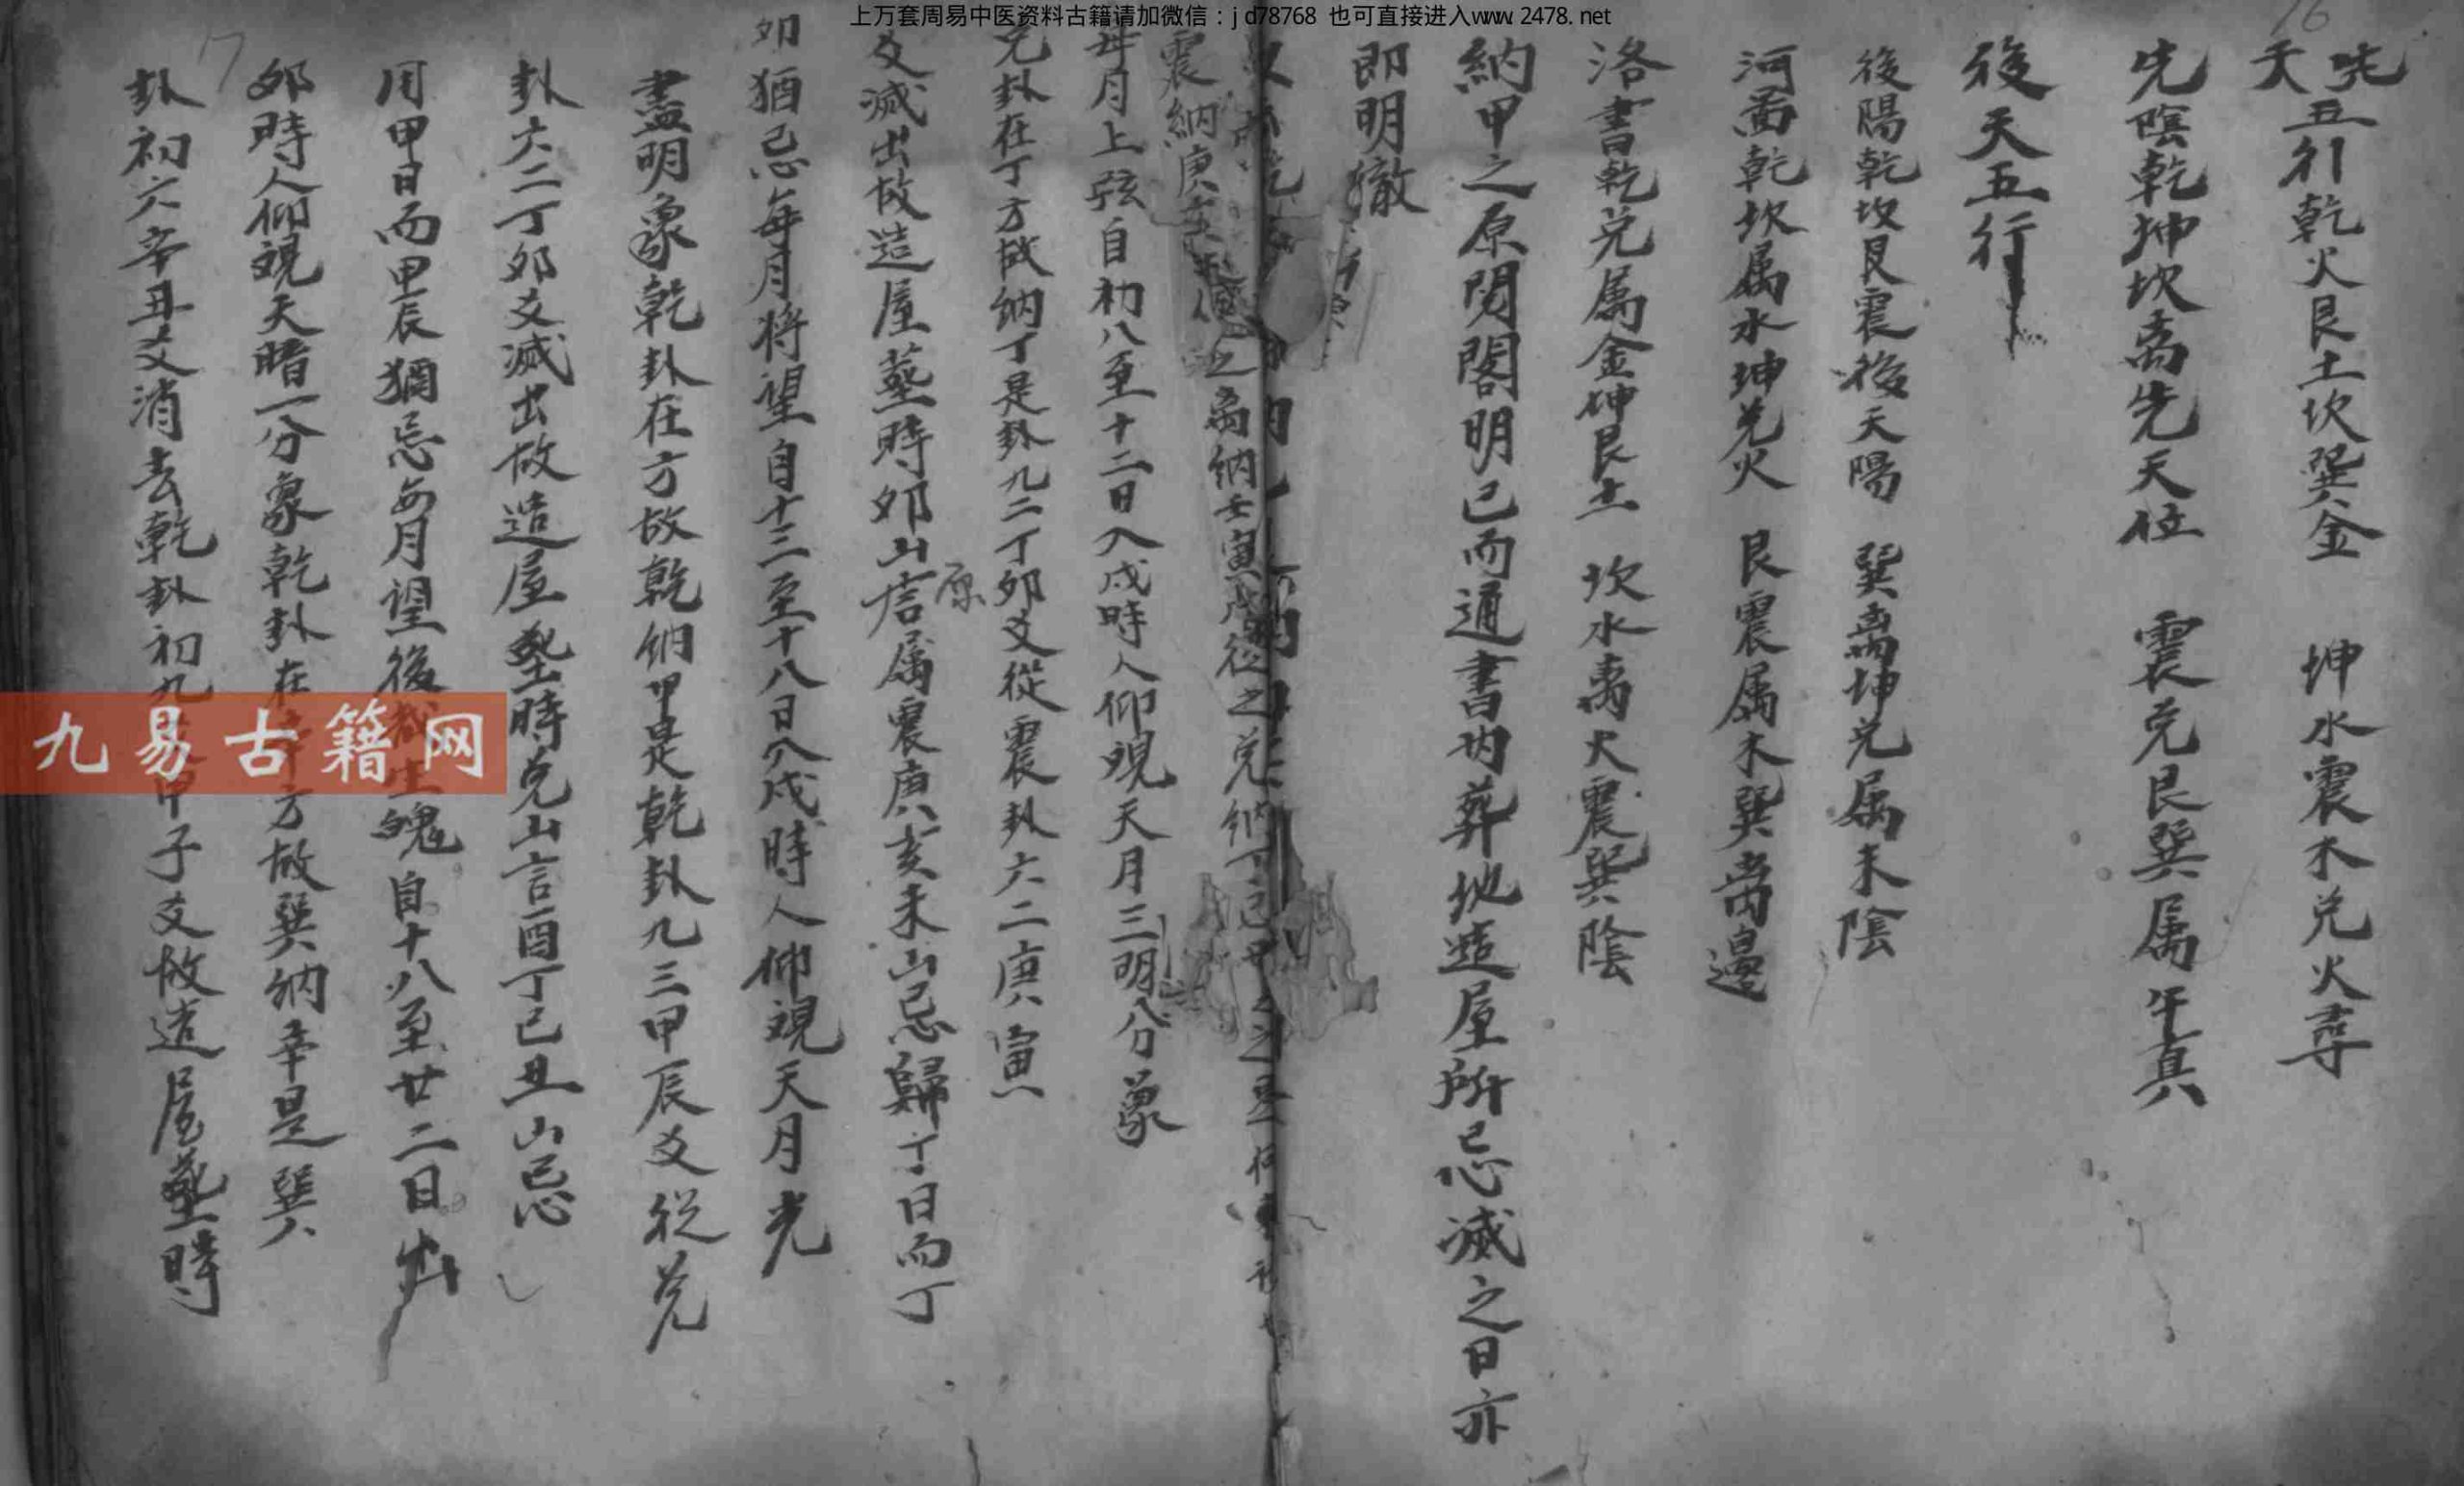 上万套周易中医资料古籍请加微信：jd78768 也可直接进入www.2478.net
16
先天五行乾火艮土坎巽金 坤水震木兑火尋
先陰乾坤坎离先天位 震兑艮巽属乎真
後天五行
後陽乾坎艮震後天陽 巽离坤兑属末陰
河啚乾坎属水坤兑火 艮震属木巽离邊
洛書乾兑属金坤艮土 坎水离火震巽陰
納甲之原閱閣明已而通書内葬地造屋所忌滅之日亦
即明徹
震納庚 之离納壬寅戌從之兑納丁巳
每月上弦自初八至十二日入戌時人仰覌天月三明八分象
兑卦在丁方故納丁是卦九二丁卯爻從震卦六二庚寅
爻滅出故造屋塟時卯山原言属震庚亥未山忌歸丁日而丁
卯猶忌每月将望自十三至十八日入戌時人仰覌天月光
盡明象乾卦在方故乾納甲是乾卦九三甲辰爻従兑
卦六二丁卯爻滅出故造屋塟時兑山言酉丁巳丑山忌
用甲日而甲辰猶忌每月望後 生魄自十八至廿二日出
卯時人仰覌天暗一分象乾卦在 方故巽納辛是巽
卦初六辛丑爻消去乾卦初九 甲子爻故造屋塟時
17
九易古籍网